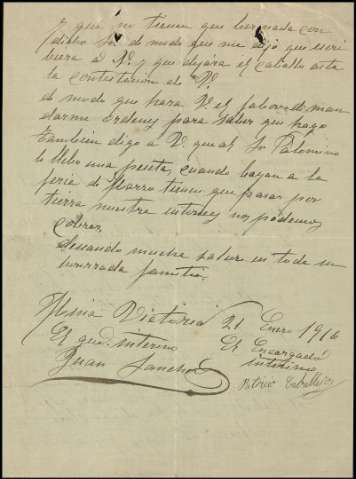 y que no tienen que ver nada con
dicho Sr de modo que me dijo que escri
biera a V. y que dejara el caballo asta
la contestacion de V.
de modo que hara V. el fabor de man
darme ordenes para saber que hago
tambien digo a V. que al Sr Palomino
le llebo una peseta, cuando bayan a la
feria de tienen que pasar por
tierra nuestra entonces nos podemos
cobrar
Deseando mucha salud en toda su
honrrada familia.
Reina Victoria 21 Enero 1916
El guda interino El Encargado
Juan Sanchez interino
Caballero